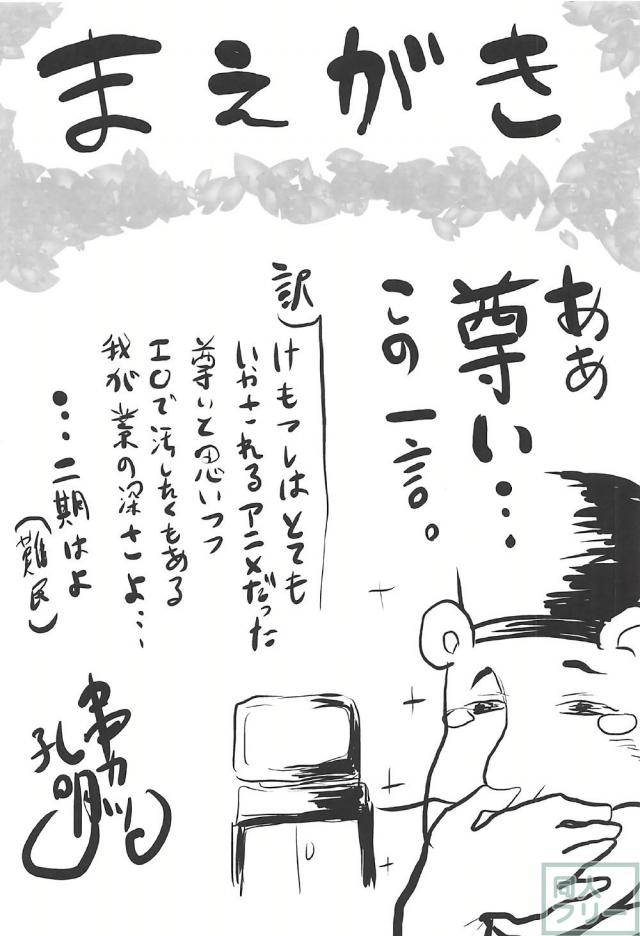 まえがき
ああ
尊い…
この一言。
訳)
けもフレはとても
いやされるアニメだった
尊いと思いつつ
エロで汚したくもある
我が業の深さよ…
…二期はよ
(難民)
串カツ
孔明
同人
フリー